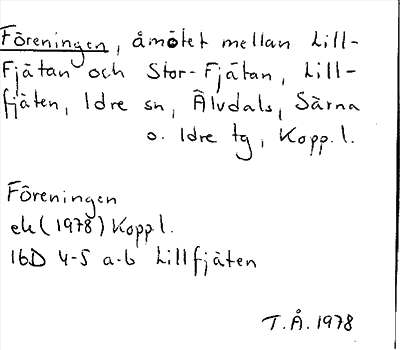 Föreningen, åmötet mellan Lill-
Fjätan och Stor-Fjätan, Lill-
fjäten, Idre sn, Älvdals, Särna
o. Idre tg, Kopp.l.
Föreningen
ek (1978) Koppl.
16D 4-5 a-b Lillfjäten
T.Å. 1978